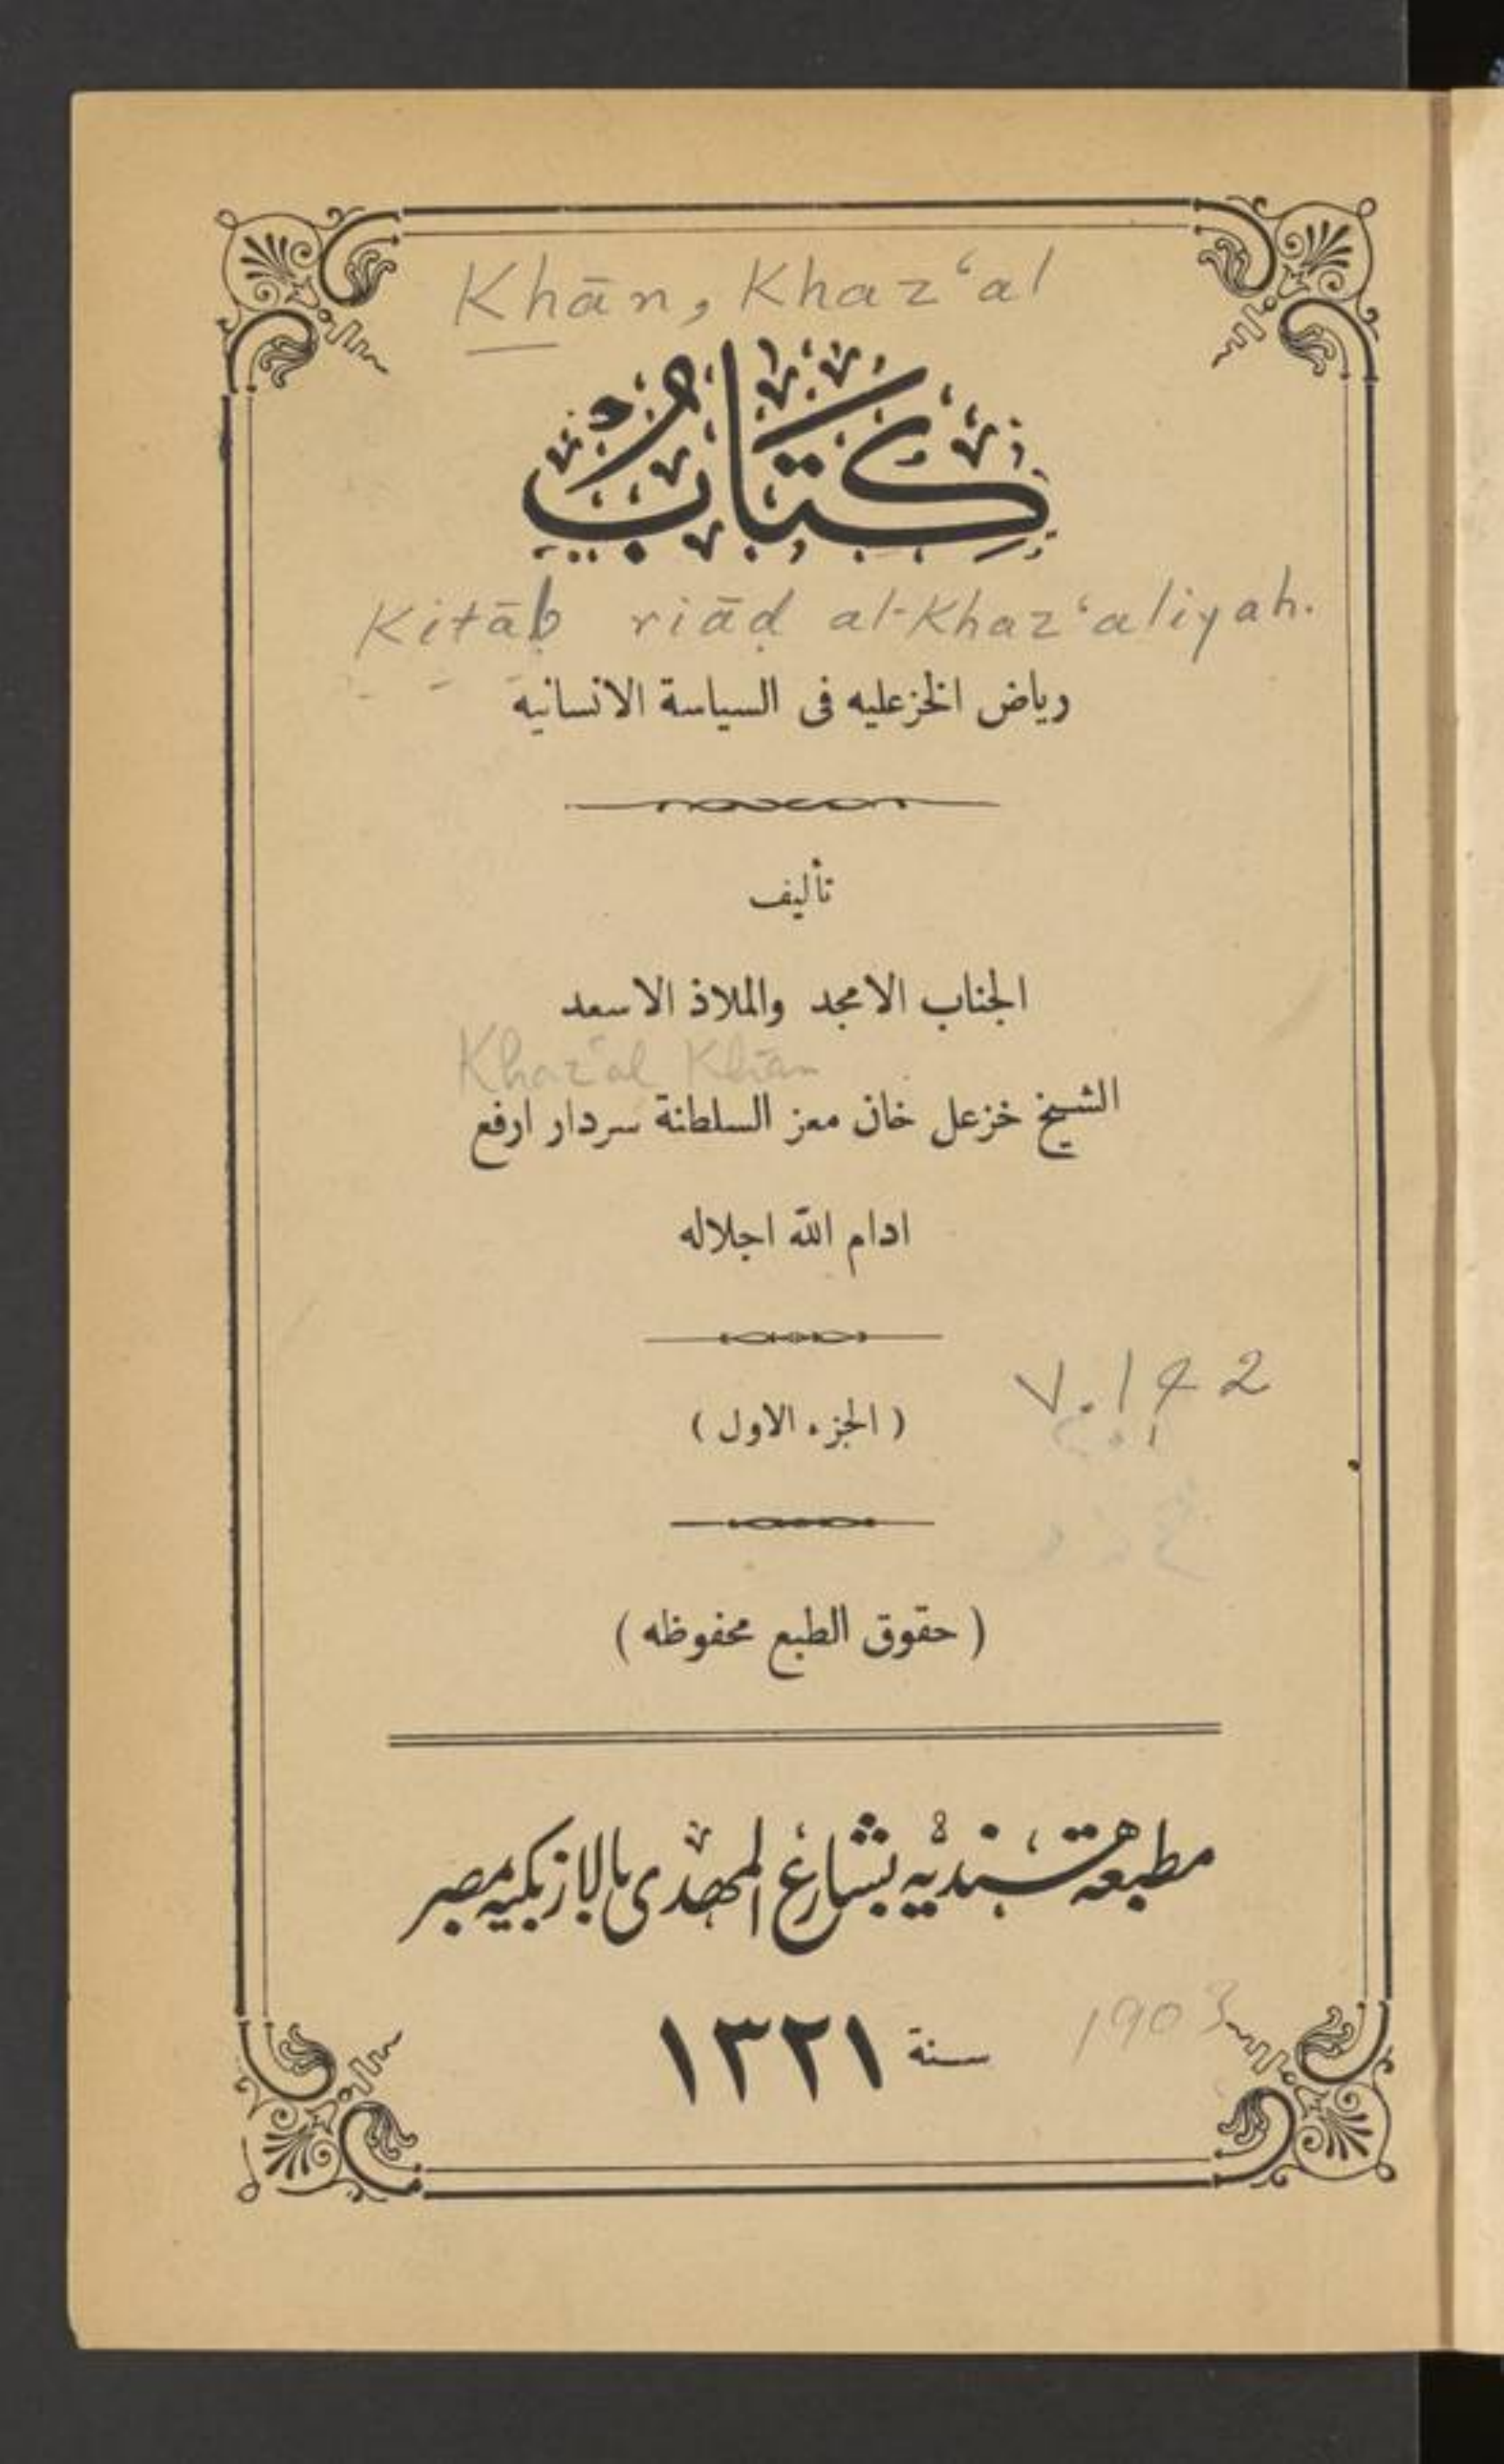 Khān, Khaz‘al
كِتَابُ
Kitāb riāḍ al-Khaz‘aliyah.
رياض الخزعليه فى السياسة الانسانية
تأليف
الجناب الامجد والملاذ الاسعد
Khaz‘al Khān
الشيخ خزعل خان معز السلطنة سردار ارفع
ادام الله اجلاله
(الجزء الاول)
V. 1 & 2
(حقوق الطبع محفوظه)
مطبعة هندية بشارع المهدى بالازبكيه بمصر
سنة ١٣٢١
1903